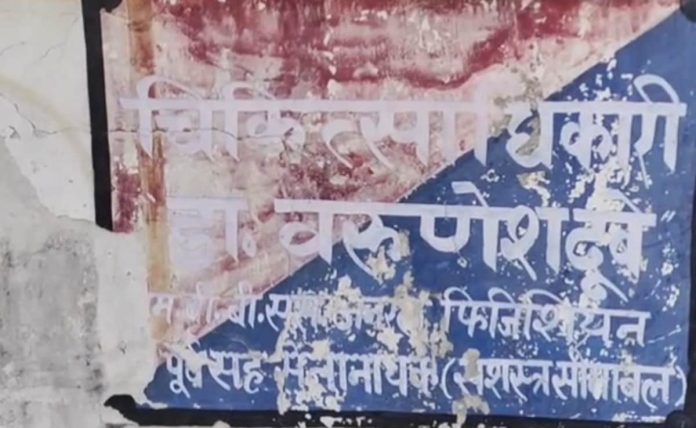 चिकित्साधिकारी
डा. वरूणेश दूबे
एम.बी.बी.एस. जनरल फिजिशियन
पूर्व सह सेनानायक (सशस्त्र सीमाबल)